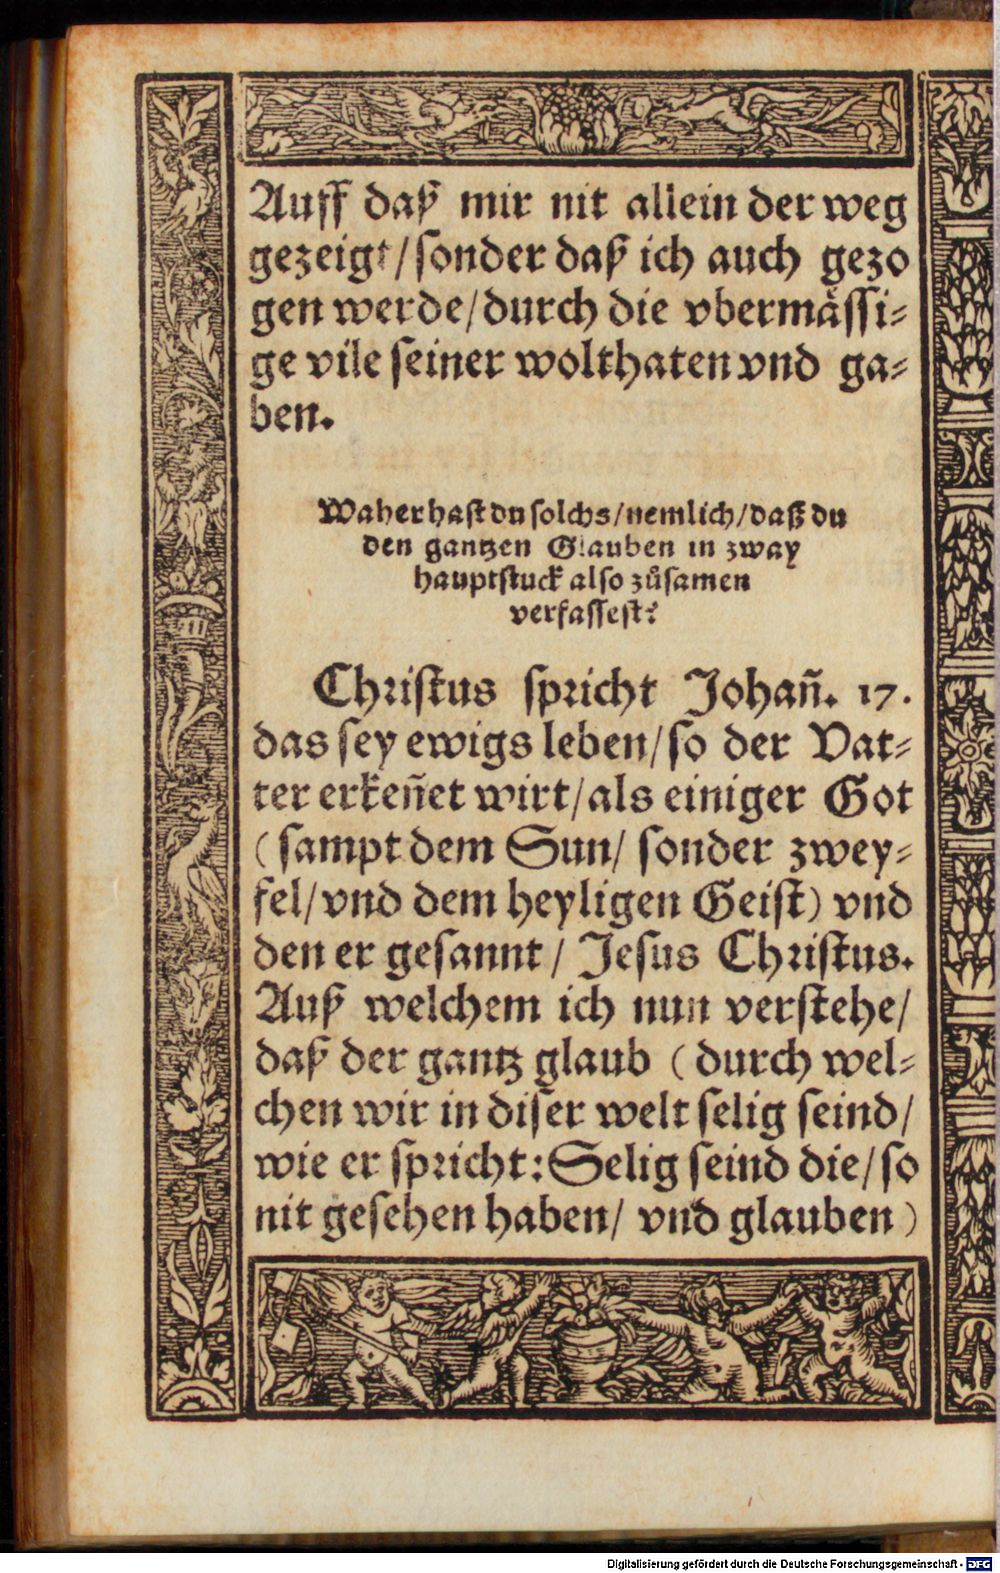 Auff daß mir nit allein der weg
gezeigt/sonder daß ich auch gezo
gen werde/durch die vbermässi-
ge vile seiner wolthaten vnd ga-
ben.
Waher hast du solchs/nemlich/daß du
den gantzen Glauben in zway
hauptstuck also zůsamen
verfassest?
Christus spricht Johañ. 17.
das sey ewigs leben/so der Vat-
ter erkeñet wirt/als einiger Got
(sampt dem Sun/ sonder zwey-
fel/vnd dem heyligen Geist) vnd
den er gesannt/ Jesus Christus.
Auß welchem ich nun verstehe/
daß der gantz glaub (durch wel-
chen wir in diser welt selig seind/
wie er spricht: Selig seind die/so
nit gesehen haben/ vnd glauben)
Digitalisierung gefördert durch die Deutsche Forschungsgemeinschaft - DFG